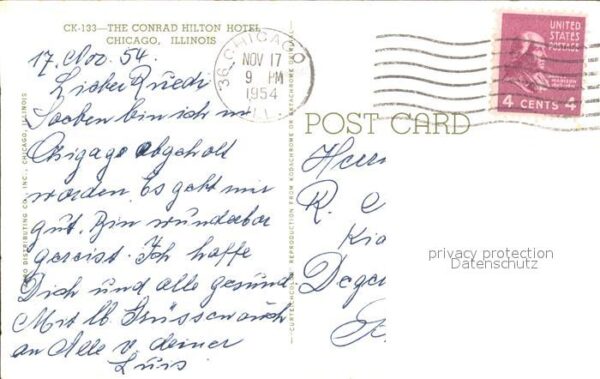 CK-133—THE CONRAD HILTON HOTEL
CHICAGO, ILLINOIS
17. Nov. 54.
Lieber Ruedi
Soeben bin ich in
Chigago abgeholt
worden. Es geht mir
gut. Bin wunderbar
gereist. Ich hoffe
Dich und alle gesund
Mit lb. Grüssen auch
an Alle v. deiner
Luis
CHICAGO
36
NOV 17
9 PM
1954
ILL.
UNITED
STATES
POSTAGE
4 CENTS 4
POST CARD
CURTEICHCOLOR REPRODUCTION FROM KODACHROME OR EKTACHROME ORIGINAL
DISTRIBUTING CO., INC., CHICAGO, ILLINOIS
Herrn
R.
privacy protection
Datenschutz